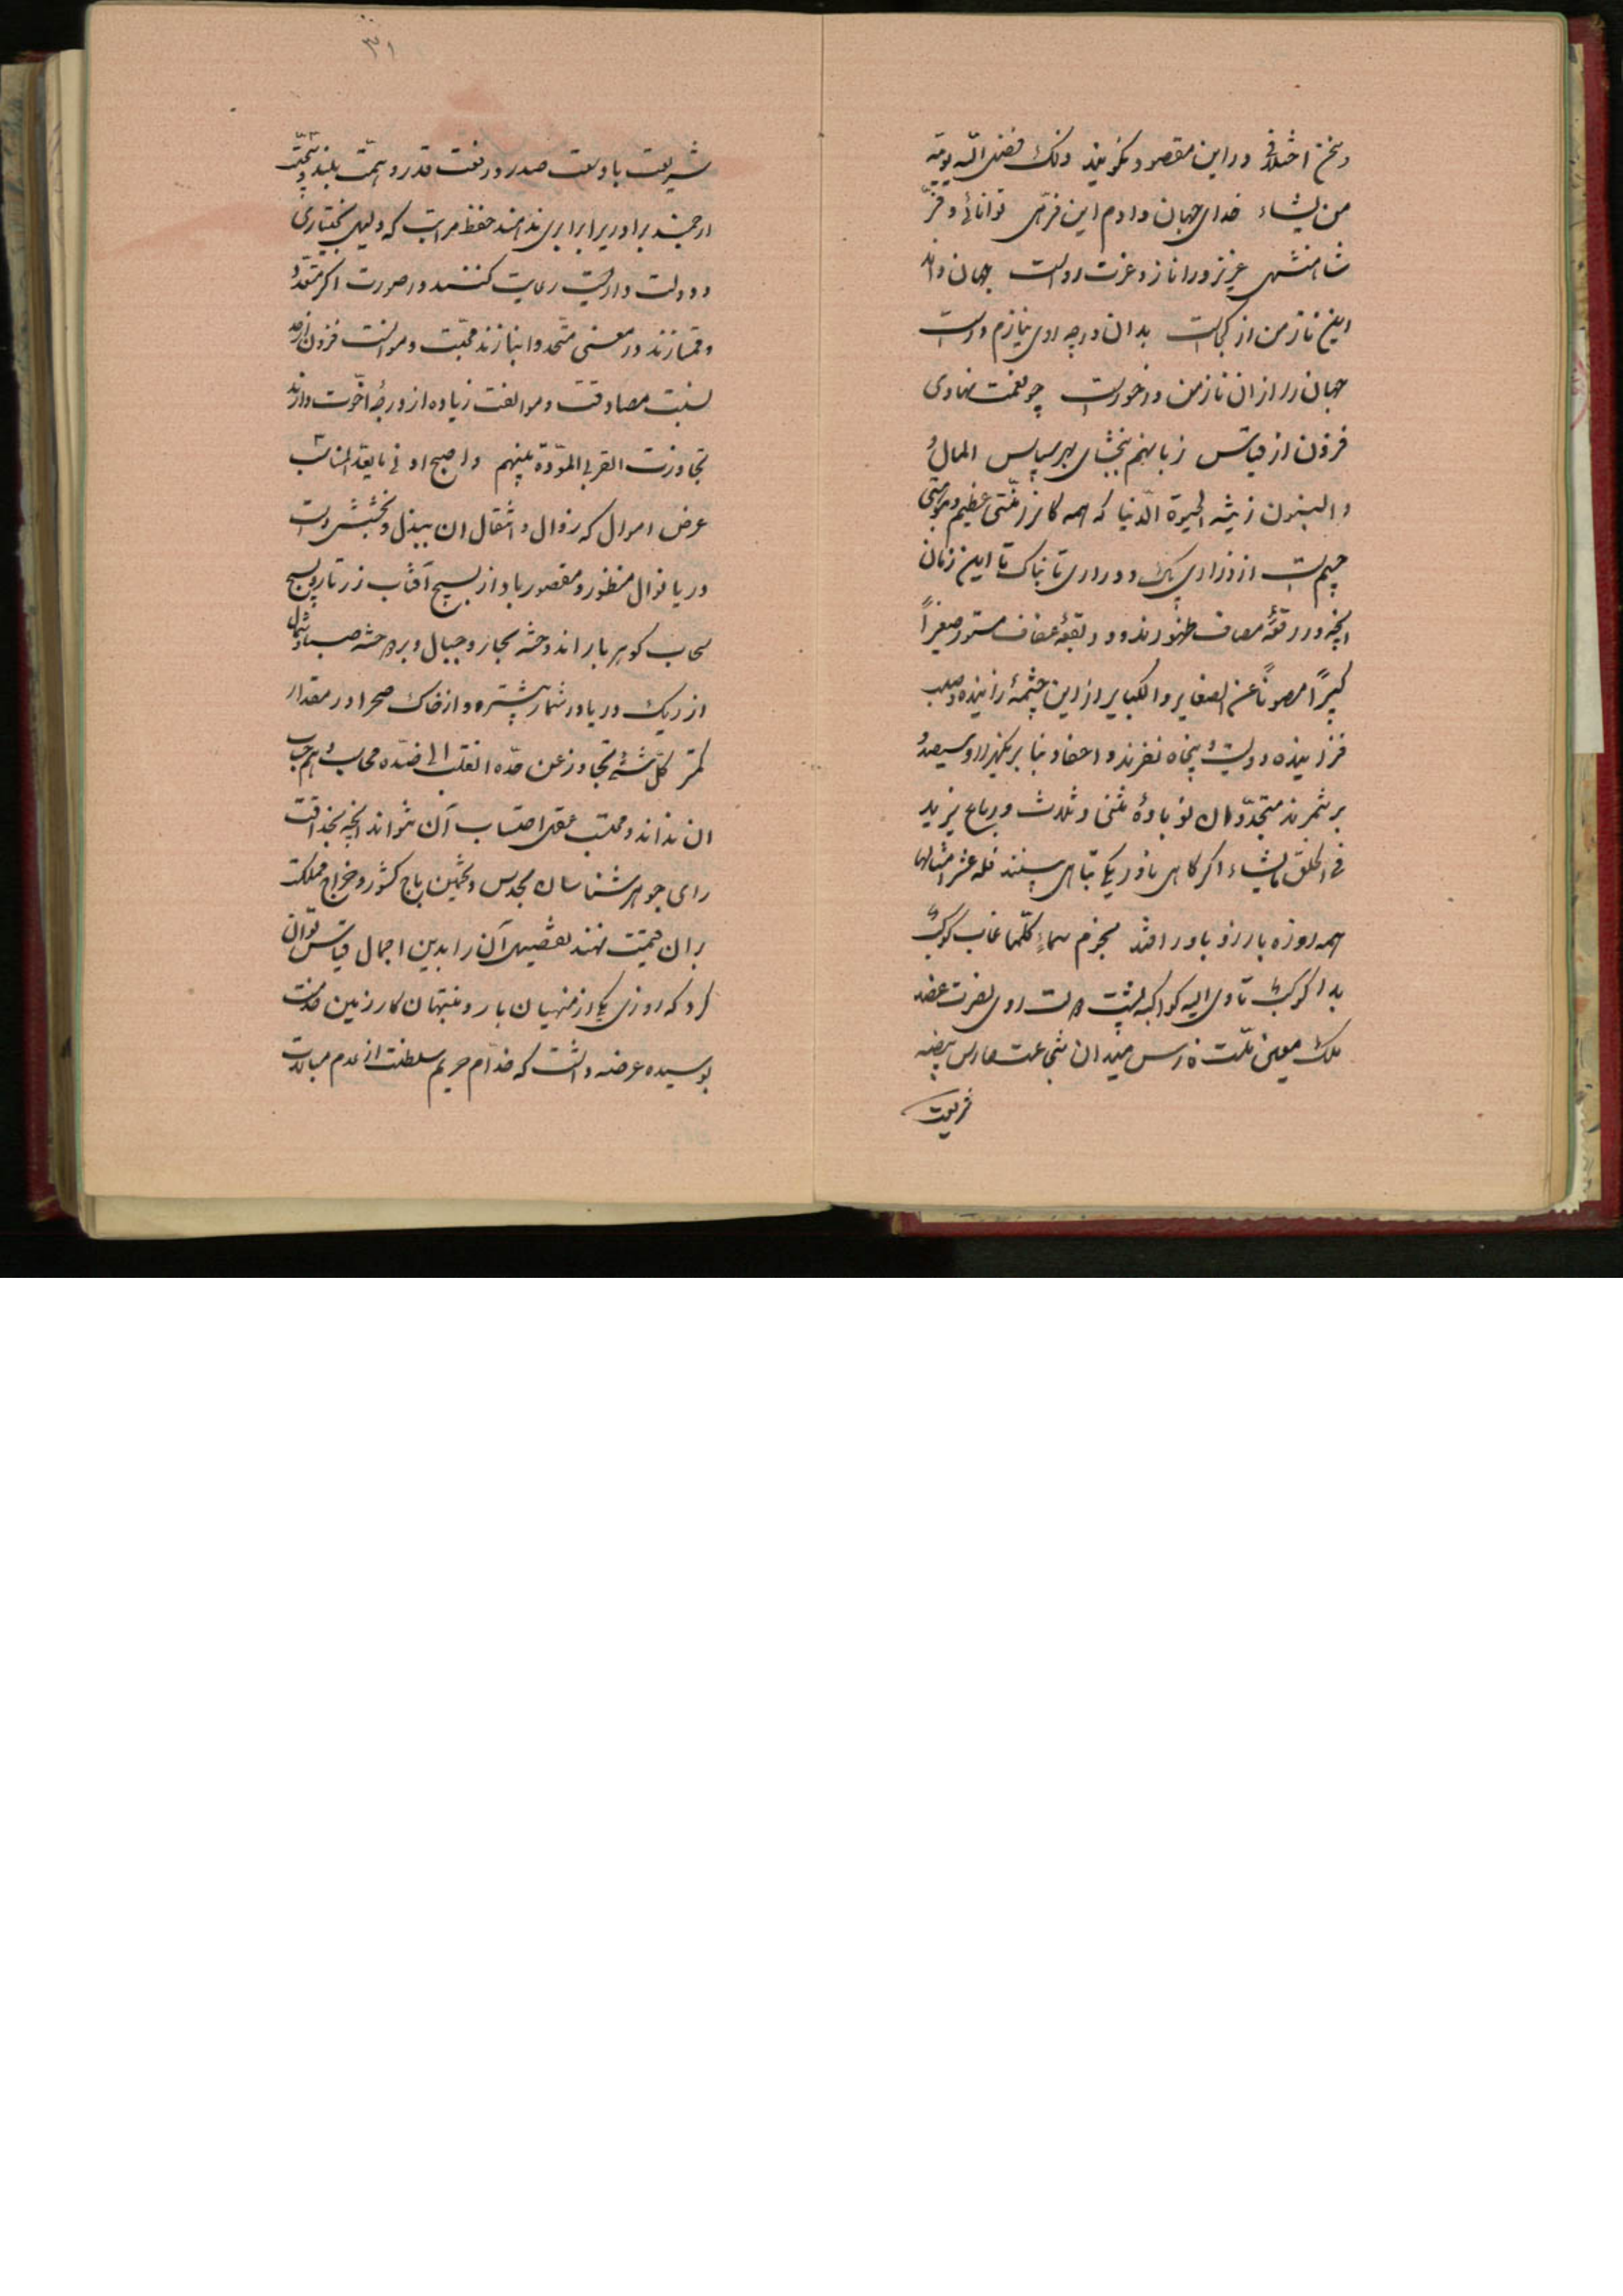 و سخن اختلافی در این مقصود نگویند ذلک فضل الله یؤتیه
من یشاء خدای جهان دادم این فرّهی توانائی و فرّ
شاهنشهی عزیز ورا ناز و عزت رواست جهان داند
این ناز من از کجاست بدان درجه روی نیازم در است
جهان را از ان ناز من در خور است چو نعمت نهادی
فزون از قیاس زبانهم ببخشای بهر سپاس المالُ
و البنون زینة الحیوة الدّنیا که همه کانرز نعمتی عظیم و موهبتی
جسیم است از ذراری پاک و دراری تابناک تا این زمان
انچه در رقعهٔ مصاف ظهور دارند و در بقعهٔ عفاف مستور صغیراً
کبیراً مصوناً عن الصغایر و الکبایر از این چشمهٔ زاینده و صلب
فزاینده دویست و پنجاه نفرند و احفاد بنا بر یکهزار و سیصد و
بر شمرند متجدّدان نوباوهٔ مثنی و ثلاث و رباع یزید
فی الخلق ما یشاء اگر کاهی بادر یکی تباهی بینند فله عشر امثالها
همه روزه بارزد باور افتد نجوم سماءٍ کلّما غاب کوکبٌ
بدا کوکبٌ تاوی الیه کواکبه پشت دولت روی نصرت عضد
ملک معین ملّت فارس میدان شجاعت حارس بیضه
شریعت
٣١
شریعت با وسعت صدر و رفعت قدر و همّت بلند و بخت
ارجمند برادر برابر ابرای ندانند حفظ مراتب که دلیل بختیاری
و دولت داریست رعایت کنند در صورت اگر متعدّد
و ممتازند در معنی متّحد و انبازند محبّت و موانست فزون از حد
نسبت مصادقت و موالفت زیاده از درجهٔ اخّوت دارند
تجاوزت القربی المودّة بینهم و اصبح ادنی ما یعدّ المناسب
عرض اموال که زوال و انتقال ان ببذل و بخشش دست
دریا نوال منظور و مقصور باد از بسیج آفتاب زر تار و نسیج
سحاب کوهر بار اندوخته بحار و جبال و پرداخته صبا و شمال
از ریک دریا در شمار بیشتر و از خاک صحرا در مقدار
کمتر کلّ شئ تجاوز عن حدّه انقلب الی ضدّه محاسب وهم حساب
ان نداند و محتسب عقل احتساب آن نتواند انچه بحذاقت
رای جوهر شناسان بحدس و تخمین باج کشور و خراج مملکت
بران قیمت نهند تفصیل آن را بدین اجمال قیاس توان
کرد که روزی یکی از منهیان بار و منتهیان کار زمین خدمت
بوسیده عرضه داشت که خدّام حریم سلطنت از عدم مبالات